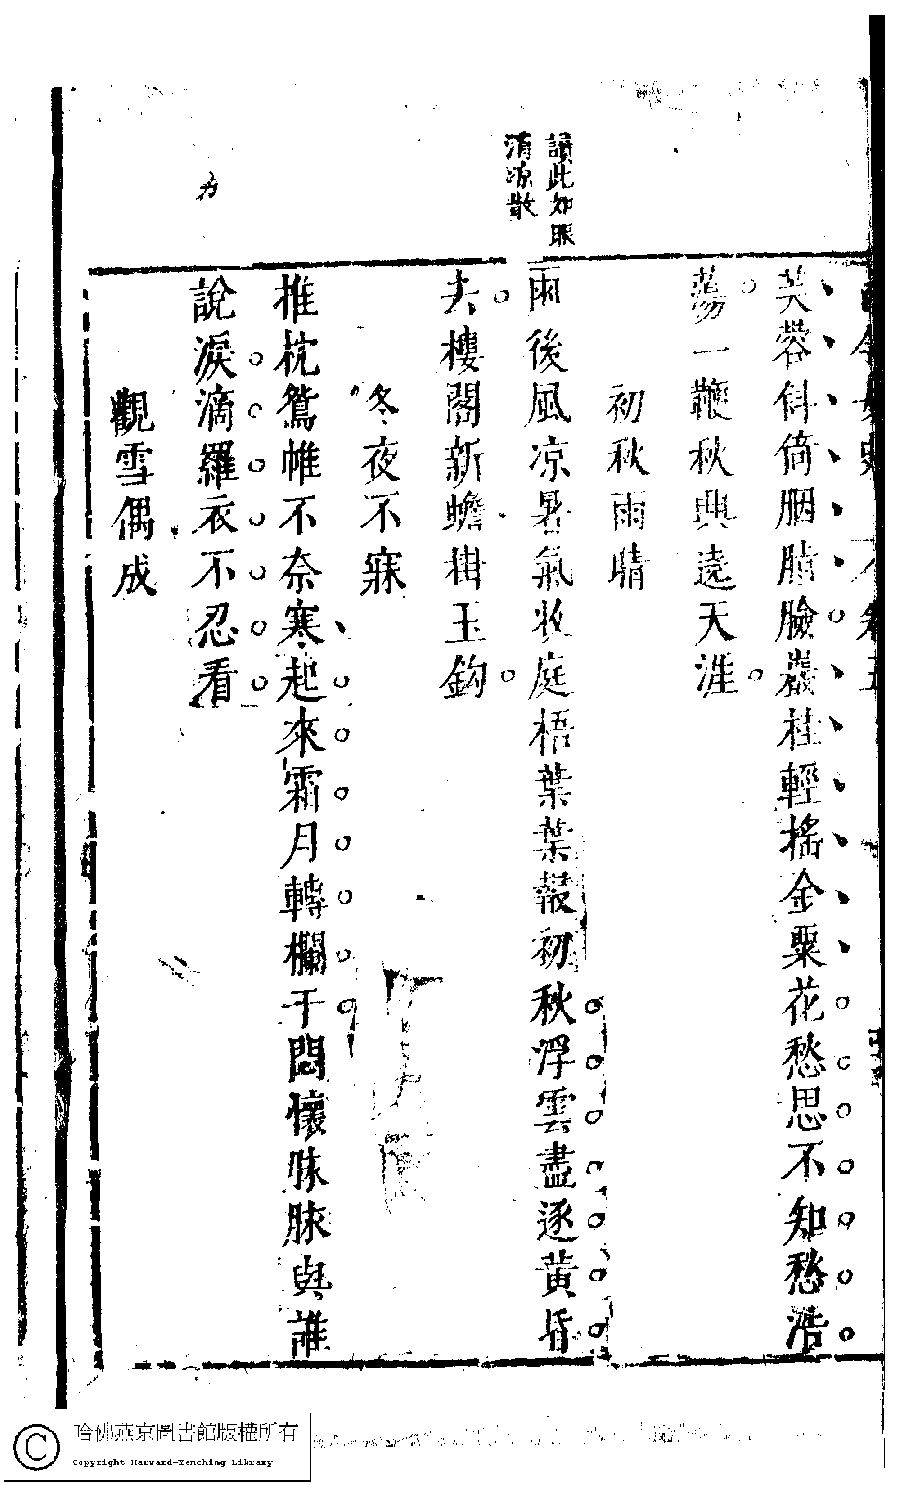 讀此如服
清凉散
芙蓉斜倚胭脂臉巖桂輕搖金粟花愁思不知愁浩
蕩一鞭秋興遶天涯
初秋雨晴
雨後風凉暑氣收庭梧葉葉報初秋浮雲盡逐黃昏
去樓閣新蟾掛玉鈎
冬夜不寐
推枕鴛帷不奈寒起來霜月轉欄干悶懷脉脉與誰
說淚滴羅衣不忍看
觀雪偶成
哈佛燕京圖書館版權所有
Copyright Harvard-Yenching Library